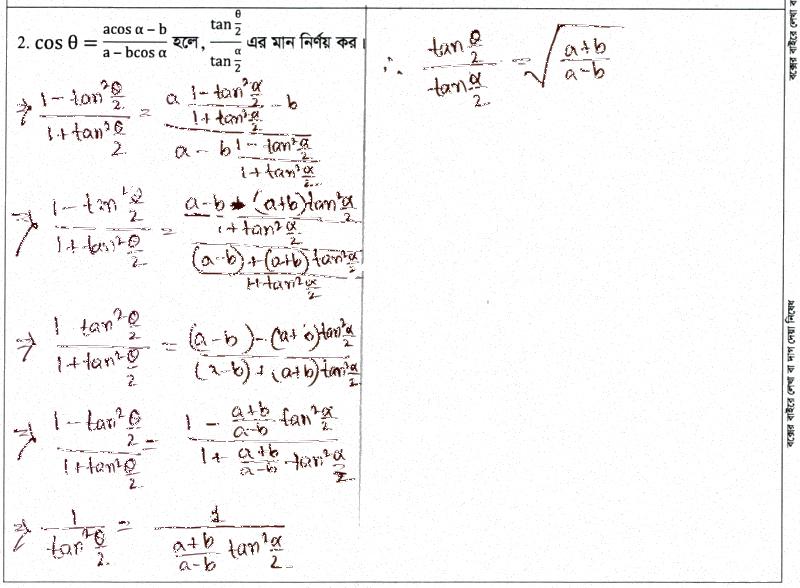 2. cos θ = (acos α – b)/(a – bcos α) হলে, (tan θ/2)/(tan α/2) এর মান নির্ণয় কর।
⇒ (1 - tan²θ/2)/(1 + tan²θ/2) = (a (1 - tan²α/2)/(1 + tan²α/2) - b)/(a - b (1 - tan²α/2)/(1 + tan²α/2))
⇒ (1 - tan²θ/2)/(1 + tan²θ/2) = ((a-b - (a+b)tan²α/2)/(1 + tan²α/2))/(((a-b) + (a+b) tan²α/2)/(1 + tan²α/2))
⇒ (1 tan²θ/2)/(1 + tan²θ/2) = ((a-b) - (a+b)tan²α/2)/((a-b) + (a+b) tan²α/2)
⇒ (1 - tan²θ/2)/(1 + tan²θ/2) = (1 - (a+b)/(a-b) tan²α/2)/(1 + (a+b)/(a-b) tan²α/2)
⇒ 1/(tan²θ/2) = 1/((a+b)/(a-b) tan²α/2)
∴ (tan θ/2)/(tan α/2) = √((a+b)/(a-b))
বক্সের বাইরে লেখা বা দাগ দেয়া নিষেধ
বক্সের বাইরে লেখা ব